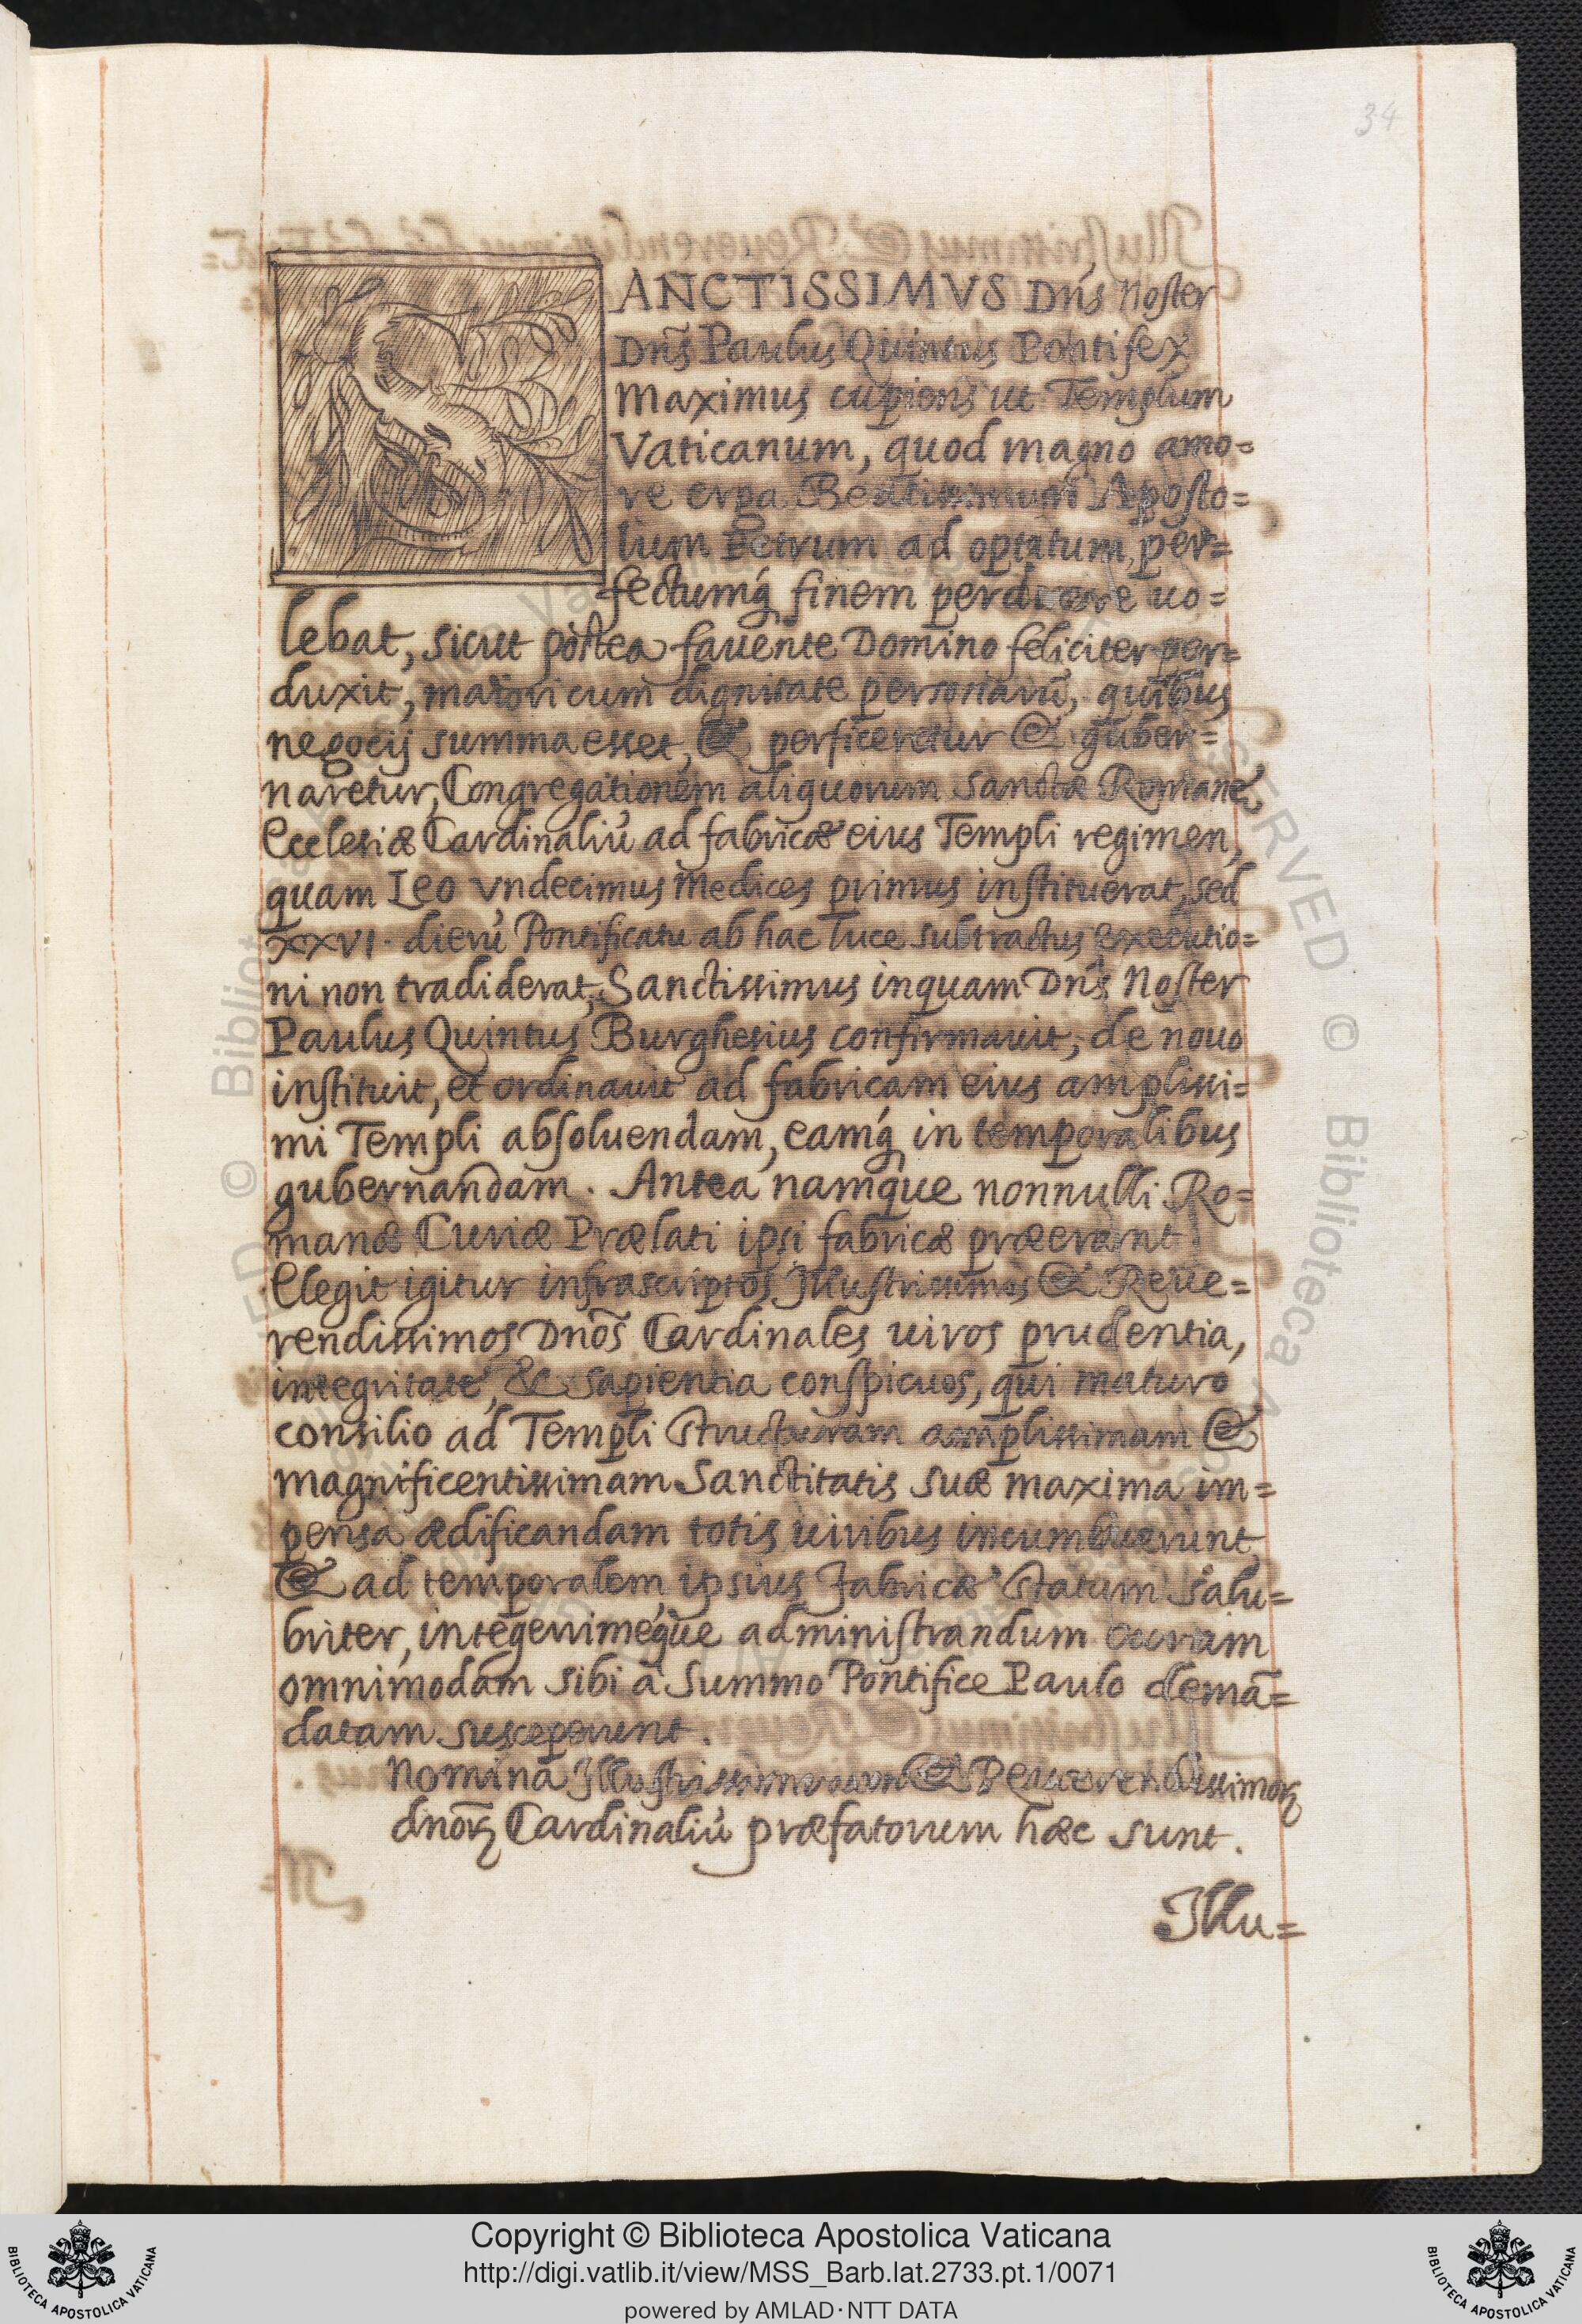 34
SANCTISSIMVS Dñs Noster
Dñs Paulus Quintus Pontifex
Maximus cupiens ut Templum
Vaticanum, quod magno amo=
re erga Beatissimum Aposto=
lum Petrum ad optatum, per=
fectumq́ finem perducere uo=
lebat, sicut postea fauente Domino feliciter per=
duxit, maiori cum dignitate personarũ, quibus
negocij summa esset, & perficeretur & guber=
naretur, Congregationem aliquorum Sanctæ Romanę
Ecclesiæ Cardinaliũ ad fabricæ eius Templi regimen,
quam Leo Vndecimus Medices primus instituerat, sed
XXVI. dierũ Pontificatu ab hac luce subtractus executio=
ni non tradiderat, Sanctissimus inquam Dñs Noster
Paulus Quintus Burghesius confirmauit, de nouo
instituit, et ordinauit ad fabricam eius amplissi=
mi Templi absoluendam, eamq́ in temporalibus
gubernandam. Antea namque nonnulli Ro=
manæ Curiæ Prælati ipsi fabricæ præerant
Elegit igitur infrascriptos Illustrissimos & Reue=
rendissimos Dnõs Cardinales uiros prudentia,
integritate, & sapientia conspicuos, qui maturo
consilio ad Templi structuram amplissimam &
magnificentissimam Sanctitatis suæ maxima im=
pensa ædificandam totis uiribus incumbuerunt,
& ad temporalem ipsius Fabricæ statum salu=
briter, integerrimeque administrandum curam
omnimodam sibi à Summo Pontifice Paulo demã=
datam susceperunt.
Nomina Illustrissimorum & Reuerendissimoꝝ
dnõꝝ Cardinaliũ præfatorum hæc sunt.
Illu=
Copyright © Biblioteca Apostolica Vaticana
http://digi.vatlib.it/view/MSS_Barb.lat.2733.pt.1/0071
powered by AMLAD·NTT DATA
BIBLIOTECA APOSTOLICA VATICANA
BIBLIOTECA APOSTOLICA VATICANA